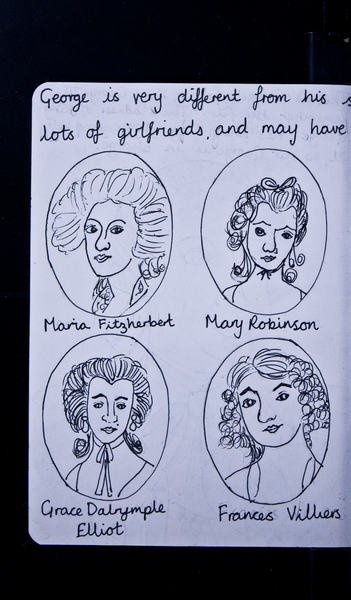 George is very different from his
lots of girlfriends, and may have
Maria Fitzherbert
Mary Robinson
Grace Dalrymple
Elliot
Frances Villiers